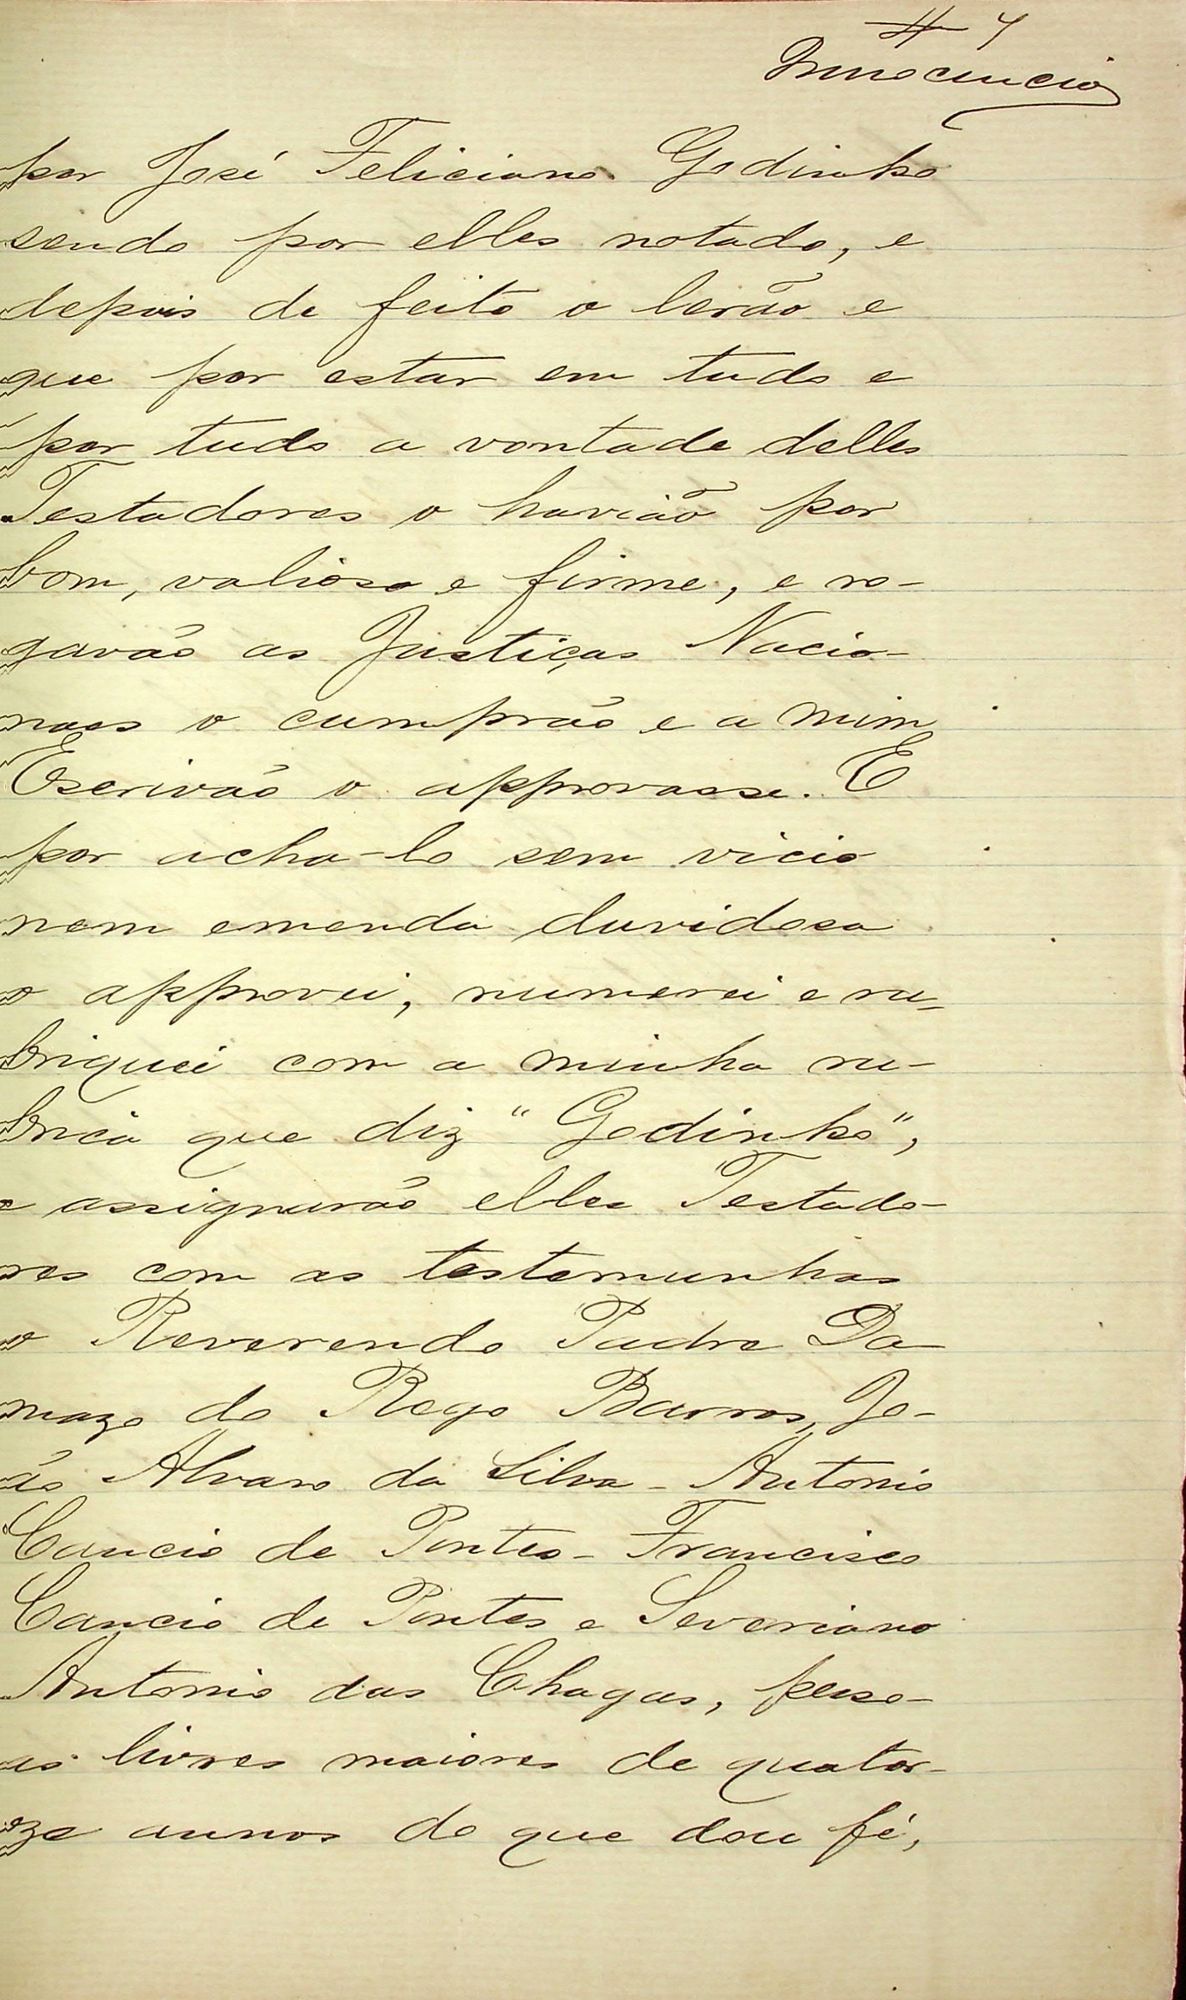 Innocencio
por José Feliciano Godinho
sendo por elles notado, e
depois de feito o lerão e
que por estar em tudo e
por tudo a vontade delles
Testadores o havião por
bom, valioso e firme, e ro-
gavão as Justiças Nacio-
naes o cumprão e a mim
Escrivão o approvasse. E
por acha-lo sem vicio
nem emenda duvidosa
o approvei, numerei e ru-
briquei com a minha ru-
brica que diz "Godinho",
e assignarão elles Testado-
res com as testemunhas
o Reverendo Padre Da
mazo do Rego Barros, Jo-
ão Alvaro da Silva - Antonio
Cancio de Pontes - Francisco
Cancio de Pontes e Severiano
Antonio das Chagas, pesso-
as livres maiores de quator-
ze annos do que dou fé,